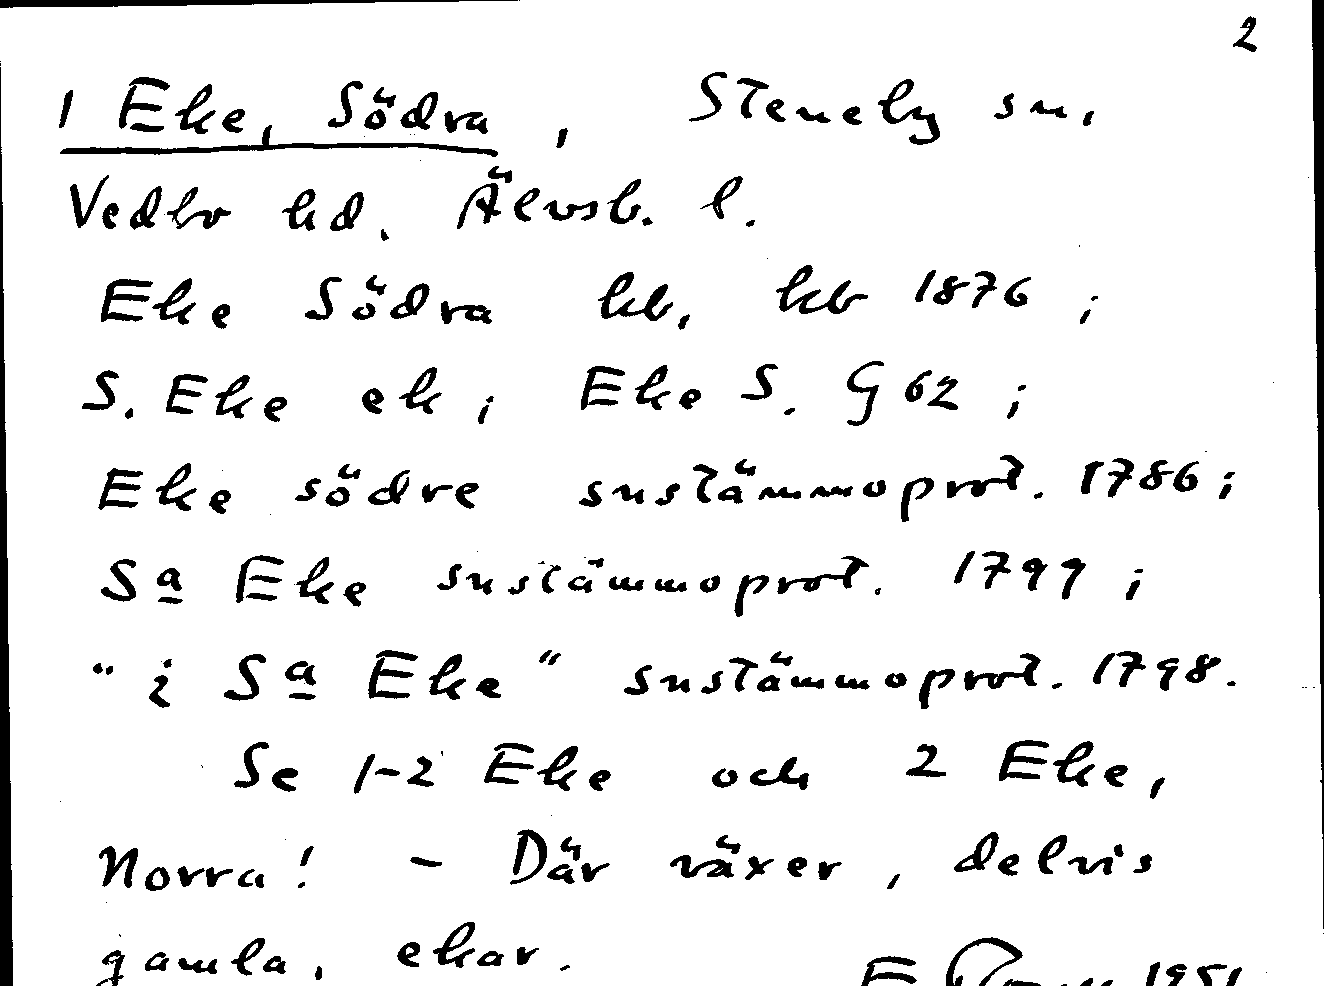 2
1 Eke, Södra, Steneby sn,
Vedbo hd. Älvsb. l.
Eke Södra kb, kb 1876;
S. Eke ek; Eke S. G 62;
Eke södre snstämmoprot. 1786;
Sa Eke snstämmoprot. 1799;
"i Sa Eke" snstämmoprot. 1798.
Se 1-2 Eke och 2 Eke,
Norra! – Där växer, delvis
gamla, ekar.
1951